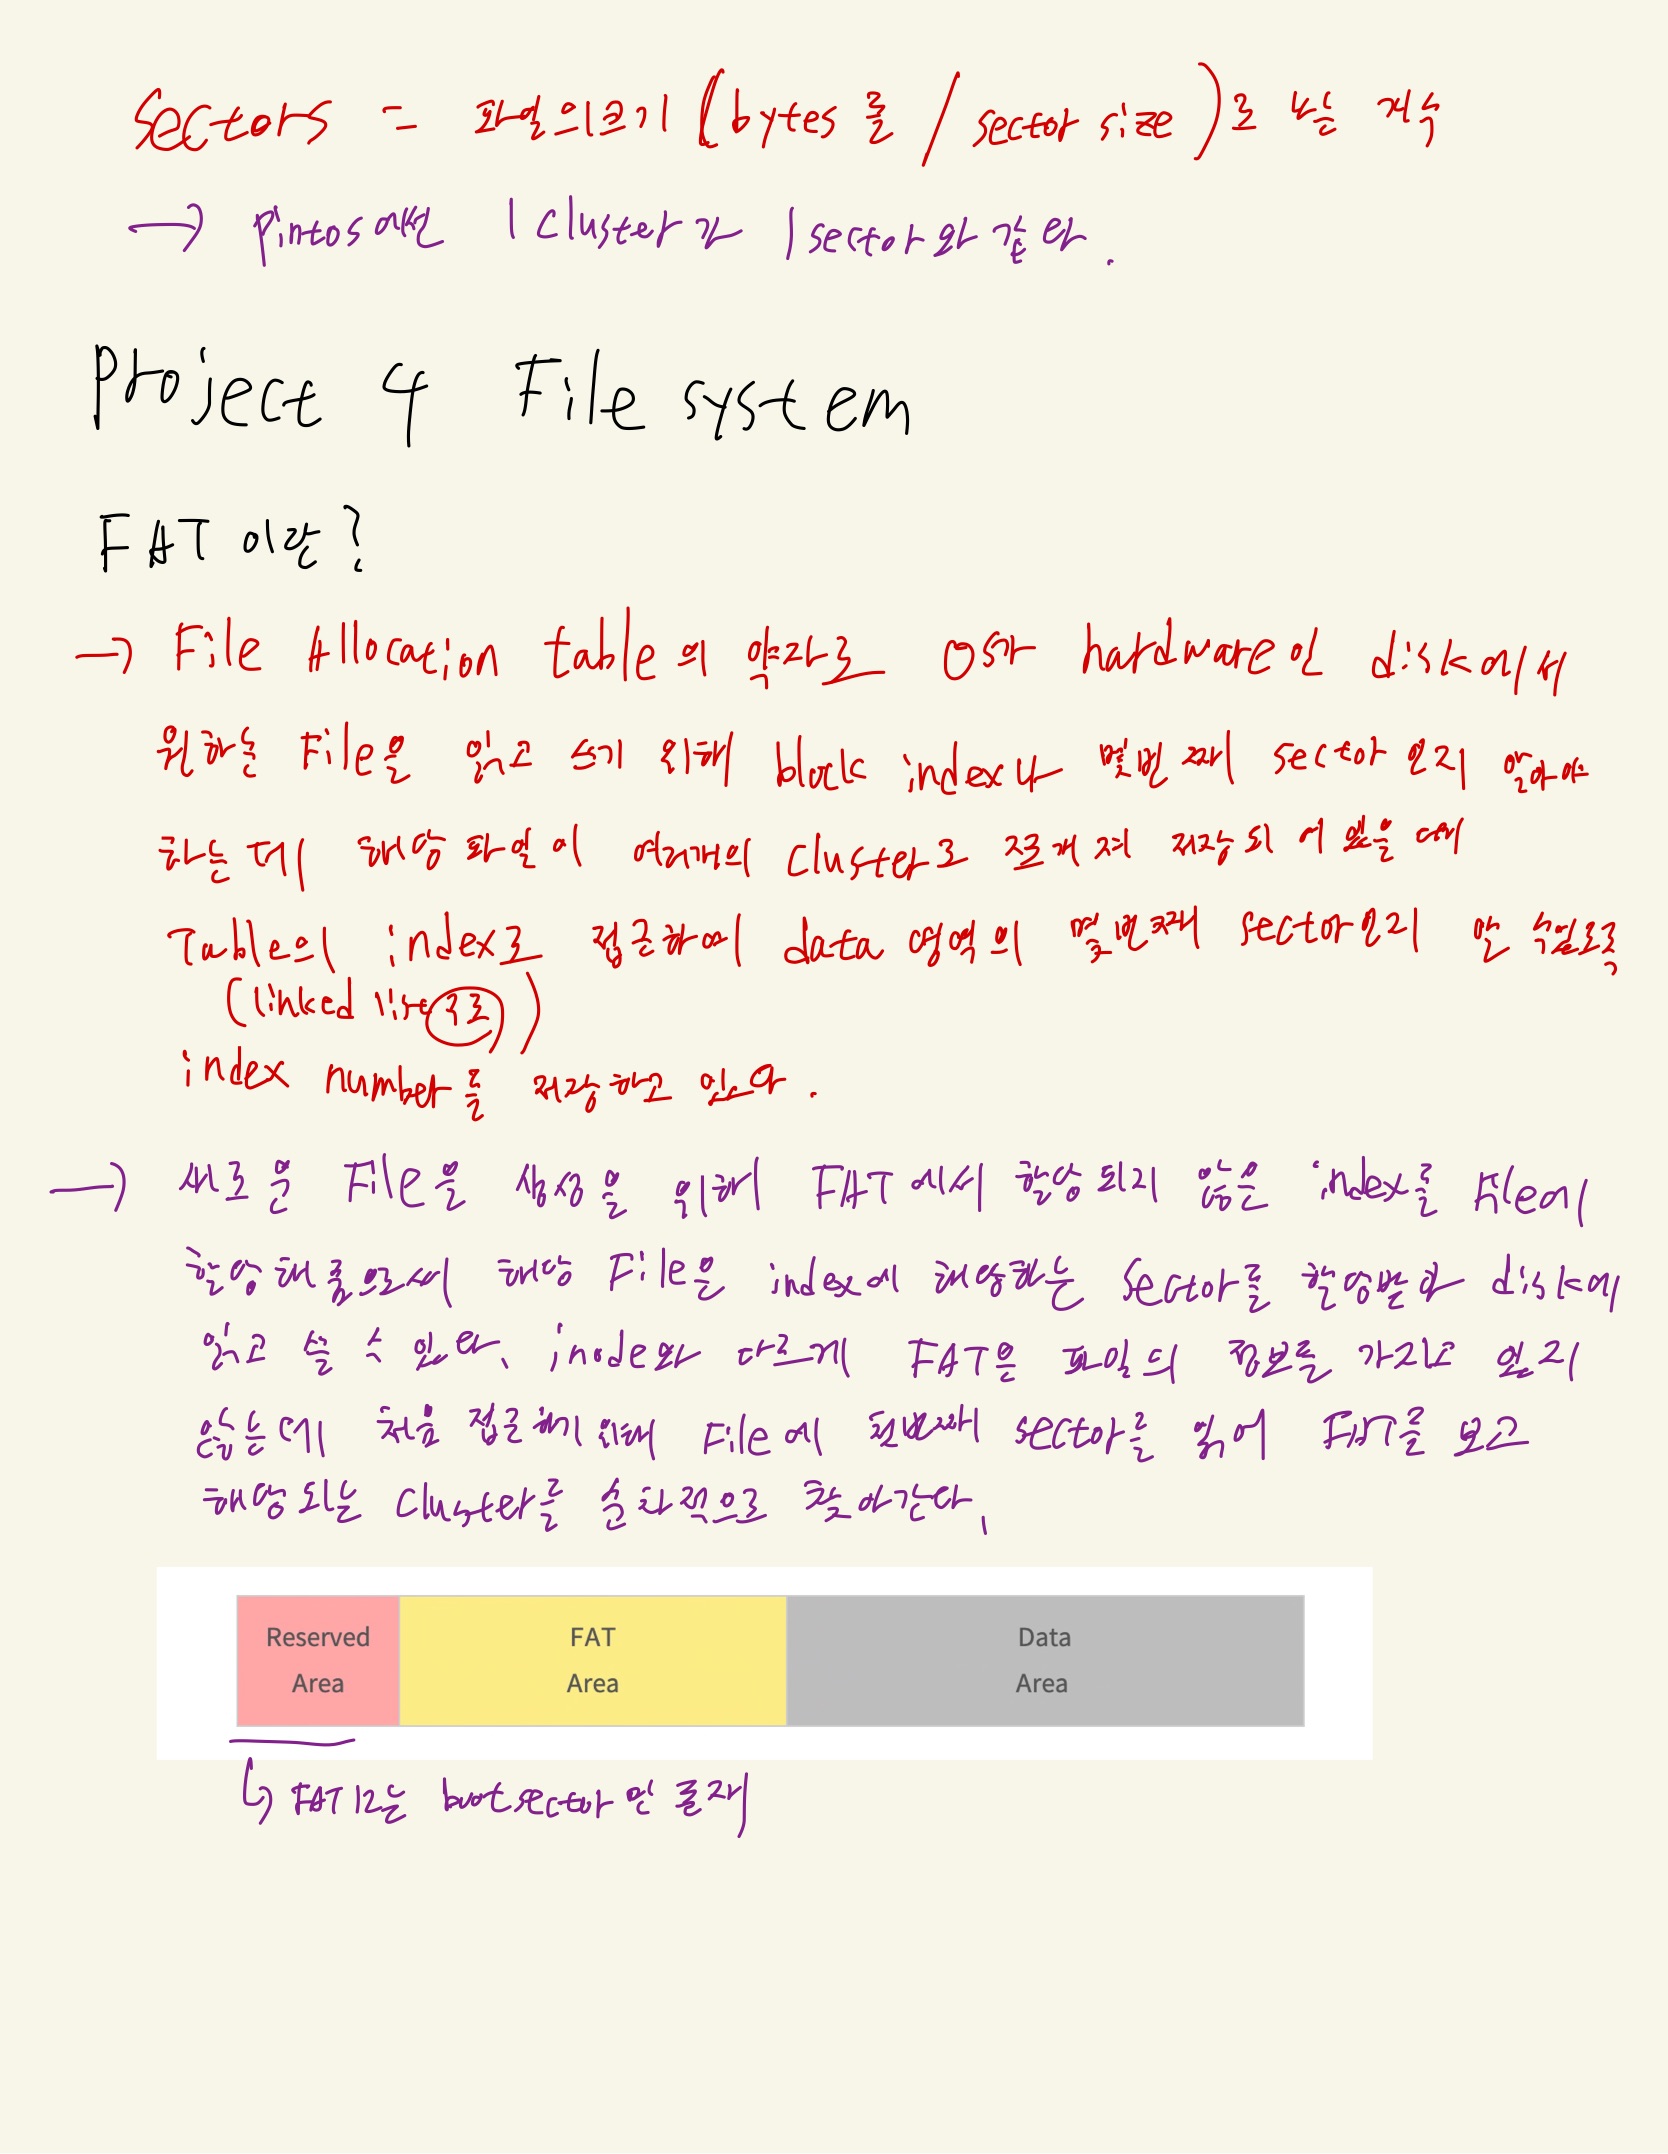 Sectors = 파일의크기 (bytes를 / sector size)로 나눈 개수
→ pintos에선 1 cluster가 1 sector와 같다.
Project 4 File system
FAT 이란?
→ File Allocation table의 약자로 OS가 hardware인 disk에서
원하는 File을 읽고 쓰기 위해 block index나 몇번째 sector인지 알아야
하는데 해당 파일이 여러개의 cluster로 쪼개져 저장되어 있을 때
Table의 index로 접근하여 data 영역의 몇번째 sector인지 알 수 있도록
(linked list 구조)
index number를 저장하고 있다.
→ 새로운 File을 생성을 위해 FAT에서 할당되지 않은 index를 File에
할당해줌으로써 해당 File은 index에 해당하는 sector를 할당받아 disk에
읽고 쓸 수 있다. inode와 다르게 FAT은 파일의 정보를 가지고 있지
않는데 처음 접근하기 위해 File에 첫번째 sector를 읽어 FAT를 보고
해당되는 cluster를 순차적으로 찾아간다.
Reserved Area FAT Area Data Area
↳ FAT12는 boot sector만 존재